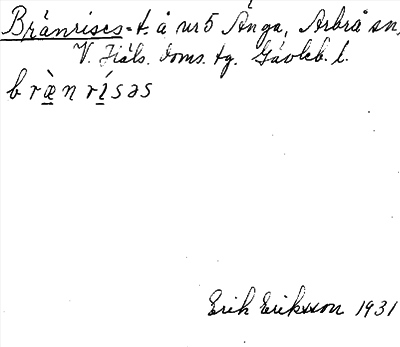 Brånrises-t. å nr 5 Änga, Arbrå sn,
V. Häls. doms. tg. Gävleb. l.
b r æ̀ n r í s ə s
Erik Eriksson 1931